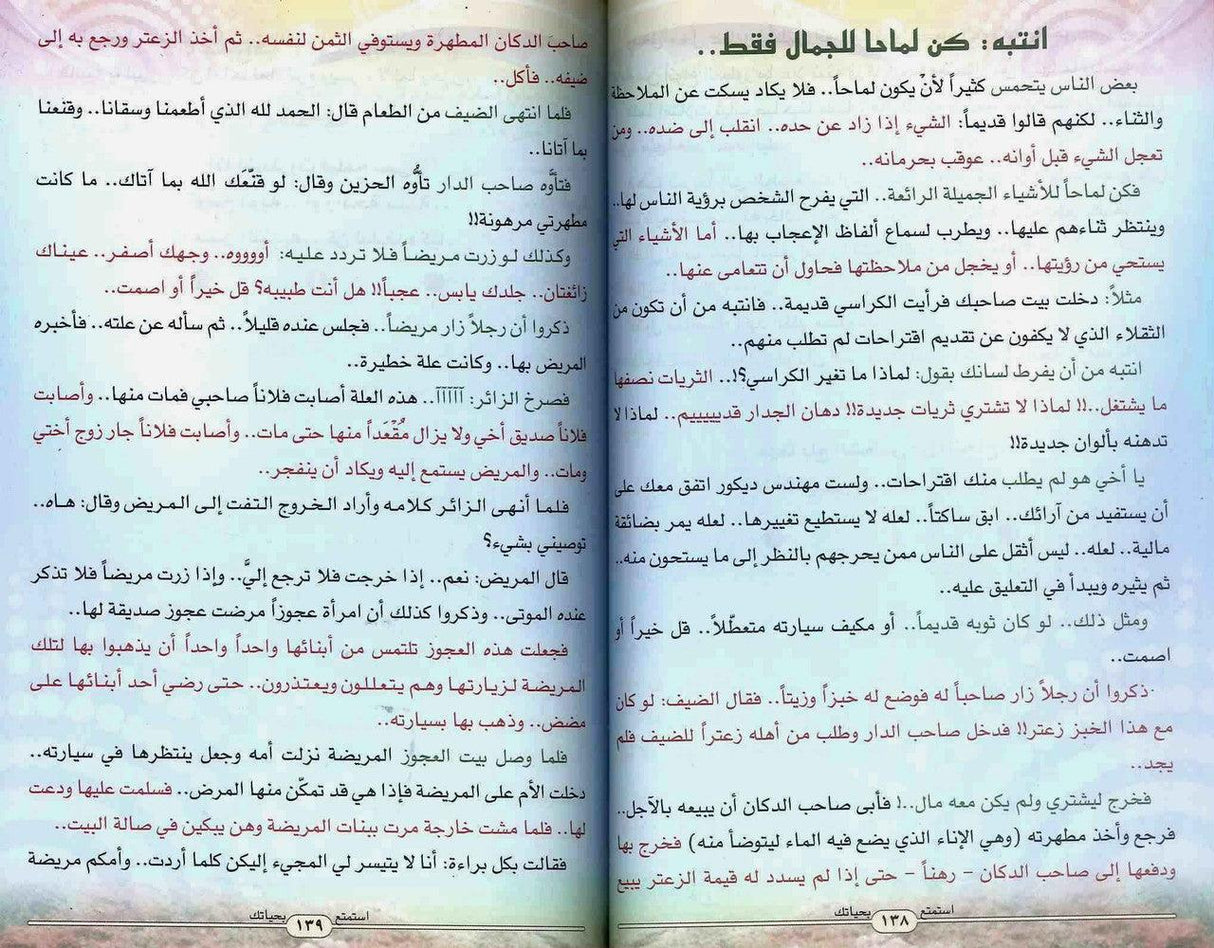 انتبه: كن لماحا للجمال فقط..
بعض الناس يتحمس كثيراً لأنْ يكون لماحاً.. فلا يكاد يسكت عن الملاحظة
والثناء.. لكنهم قالوا قديماً: الشيء إذا زاد عن حده.. انقلب إلى ضده.. ومن
تعجل الشيء قبل أوانه.. عوقب بحرمانه..
فكن لماحاً للأشياء الجميلة الرائعة.. التي يفرح الشخص برؤية الناس لها..
وينتظر ثناءهم عليها.. ويطرب لسماع ألفاظ الإعجاب بها.. أما الأشياء التي
يستحي من رؤيتها.. أو يخجل من ملاحظتها فحاول أن تتعامى عنها..
مثلاً: دخلت بيت صاحبك فرأيت الكراسي قديمة.. فانتبه من أن تكون من
الثقلاء الذي لا يكفون عن تقديم اقتراحات لم تطلب منهم..
انتبه من أن يفرط لسانك بقول: لماذا ما تغير الكراسي؟!.. الثريات نصفها
ما يشتغل..!! لماذا لا تشتري ثريات جديدة!! دهان الجدار قديييييم.. لماذا لا
تدهنه بألوان جديدة!!
يا أخي هو لم يطلب منك اقتراحات.. ولست مهندس ديكور اتفق معك على
أن يستفيد من آرائك.. ابق ساكتاً.. لعله لا يستطيع تغييرها.. لعله يمر بضائقة
مالية.. لعله.. ليس أثقل على الناس ممن يحرجهم بالنظر إلى ما يستحون منه..
ثم يثيره ويبدأ في التعليق عليه..
ومثل ذلك.. لو كان ثوبه قديماً.. أو مكيف سيارته متعطّلاً.. قل خيراً أو
اصمت..
ذكروا أن رجلاً زار صاحباً له فوضع له خبزاً وزيتاً.. فقال الضيف: لو كان
مع هذا الخبز زعتر!! فدخل صاحب الدار وطلب من أهله زعتراً للضيف فلم
يجد..
فخرج ليشتري ولم يكن معه مال..! فأبى صاحب الدكان أن يبيعه بالآجل..
فرجع وأخذ مطهرته (وهي الإناء الذي يضع فيه الماء ليتوضأ منه) فخرج بها
ودفعها إلى صاحب الدكان – رهناً – حتى إذا لم يسدد له قيمة الزعتر يبيع
استمتع بحياتك
١٣٨
صاحب الدكان المطهرة ويستوفي الثمن لنفسه.. ثم أخذ الزعتر ورجع به إلى
ضيفه.. فأكل..
فلما انتهى الضيف من الطعام قال: الحمد لله الذي أطعمنا وسقانا.. وقنعنا
بما آتانا..
فتأوَّه صاحب الدار تأوُّه الحزين وقال: لو قنّعَك الله بما آتاك.. ما كانت
مطهرتي مرهونة!!
وكذلك لو زرت مريضاً فلا تردد عليه: أوووووه.. وجهك أصفر.. عيناك
زائغتان.. جلدك يابس.. عجباً!! هل أنت طبيبه؟ قل خيراً أو اصمت..
ذكروا أن رجلاً زار مريضاً.. فجلس عنده قليلاً.. ثم سأله عن علته.. فأخبره
المريض بها.. وكانت علة خطيرة..
فصرخ الزائر: آآآآآ.. هذه العلة أصابت فلاناً صاحبي فمات منها.. وأصابت
فلاناً صديق أخي ولا يزال مُقْعَداً منها حتى مات.. وأصابت فلاناً جار زوج أختي
ومات.. والمريض يستمع إليه ويكاد أن ينفجر..
فلما أنهى الزائر كلامه وأراد الخروج التفت إلى المريض وقال: هاه..
توصيني بشيء؟
قال المريض: نعم.. إذا خرجت فلا ترجع إليَّ.. وإذا زرت مريضاً فلا تذكر
عنده الموتى.. وذكروا كذلك أن امرأة عجوزاً مرضت عجوز صديقة لها..
فجعلت هذه العجوز تلتمس من أبنائها واحداً واحداً أن يذهبوا بها لتلك
المريضة لزيارتها وهم يتعللون ويعتذرون.. حتى رضي أحد أبنائها على
مضض.. وذهب بها بسيارته..
فلما وصل بيت العجوز المريضة نزلت أمه وجعل ينتظرها في سيارته..
دخلت الأم على المريضة فإذا هي قد تمكّن منها المرض.. فسلمت عليها ودعت
لها.. فلما مشت خارجة مرت ببنات المريضة وهن يبكين في صالة البيت..
فقالت بكل براءة: أنا لا يتيسر لي المجيء إليكن كلما أردت.. وأمكم مريضة
استمتع بحياتك
١٣٩